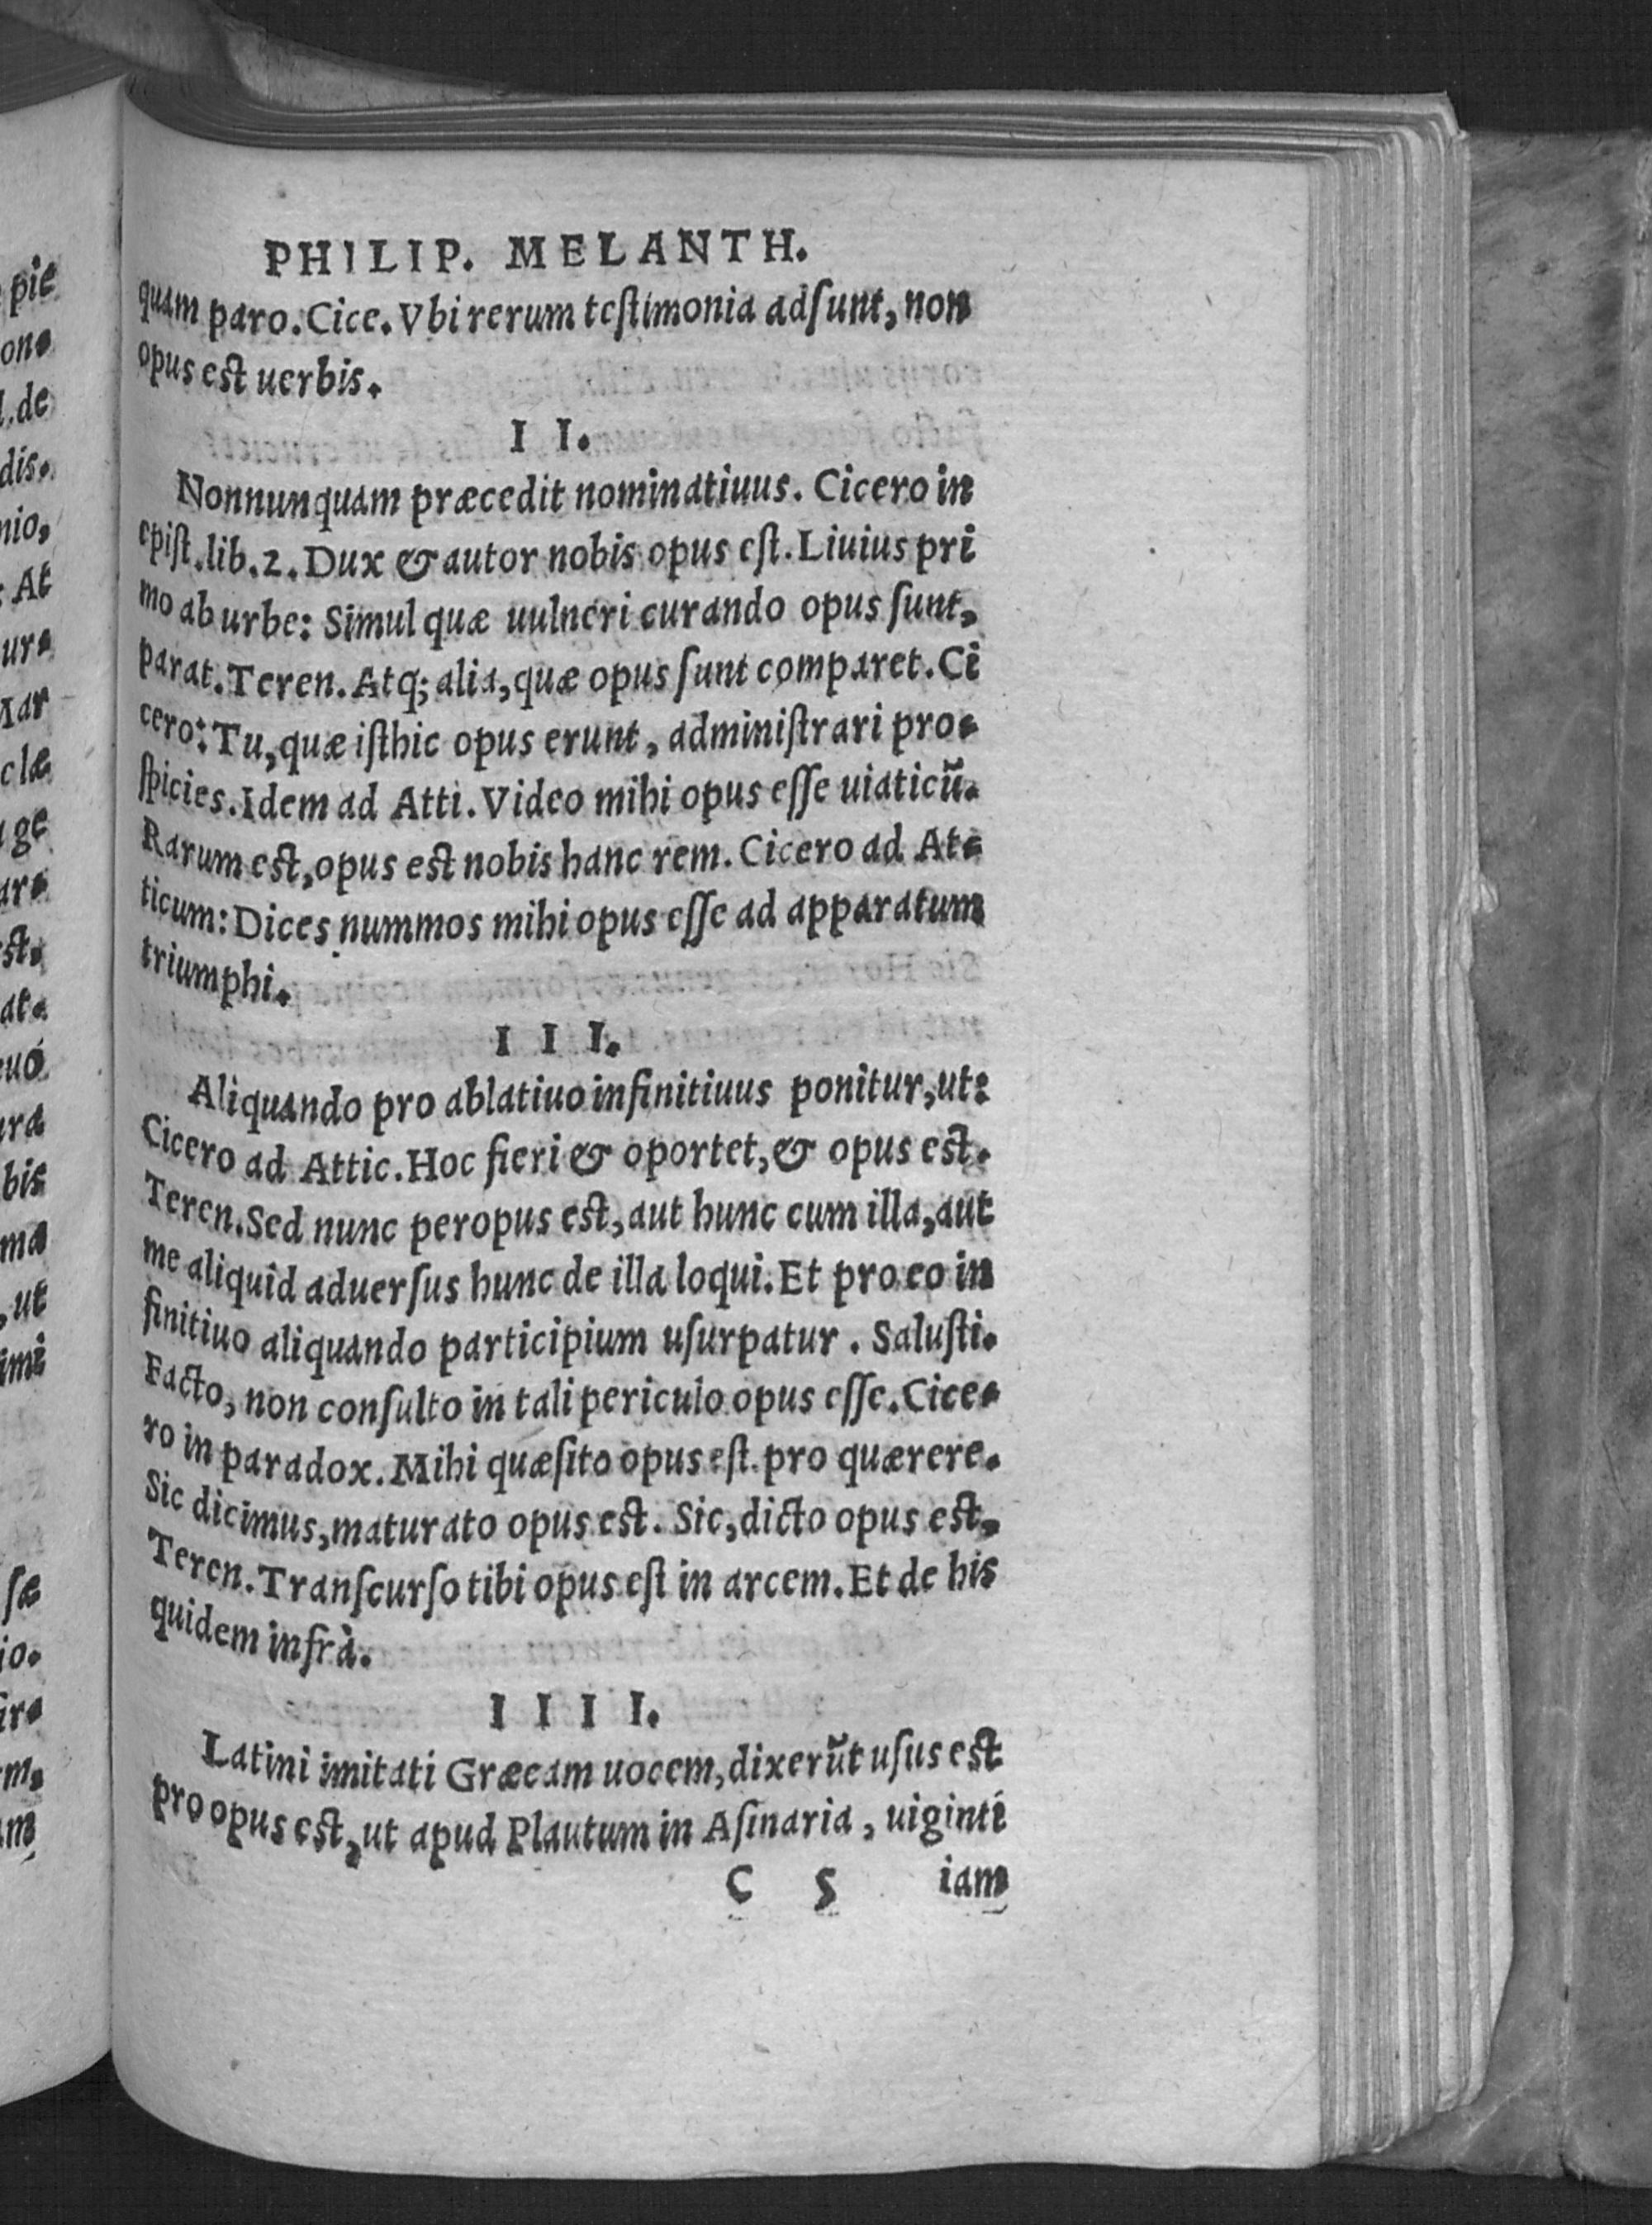 PHILIP. MELANTH.
quam paro. Cice. Vbi rerum teſtimonia adſunt, non
opus eſt uerbis.
I I.
Nonnunquam præcedit nominatiuus. Cicero in
epiſt. lib. 2. Dux & autor nobis opus eſt. Liuius pri
mo ab urbe: Simul quæ uulneri curando opus ſunt,
parat. Teren. Atq; alia, quæ opus ſunt comparet. Ci
cero: Tu, quæ iſthic opus erunt, adminiſtrari pro-
ſpicies. Idem ad Atti. Video mihi opus eſſe uiaticũ.
Rarum eſt, opus eſt nobis hanc rem. Cicero ad At-
ticum: Dices nummos mihi opus eſſe ad apparatum
triumphi.
I I I.
Aliquando pro ablatiuo infinitiuus ponitur, ut:
Cicero ad Attic. Hoc fieri & oportet, & opus eſt.
Teren. Sed nunc peropus eſt, aut hunc cum illa, aut
me aliquid aduerſus hunc de illa loqui. Et pro eo in
finitiuo aliquando participium uſurpatur. Saluſti.
Facto, non conſulto in tali periculo opus eſſe. Cice-
ro in paradox. Mihi quæſito opus eſt. pro quærere.
Sic dicimus, maturato opus eſt. Sic, dicto opus eſt,
Teren. Tranſcurſo tibi opus eſt in arcem. Et de his
quidem infrà.
I I I I.
Latini imitati Græcam uocem, dixerũt uſus eſt
pro opus eſt, ut apud Plautum in Aſinaria, uiginti
C 5 iam